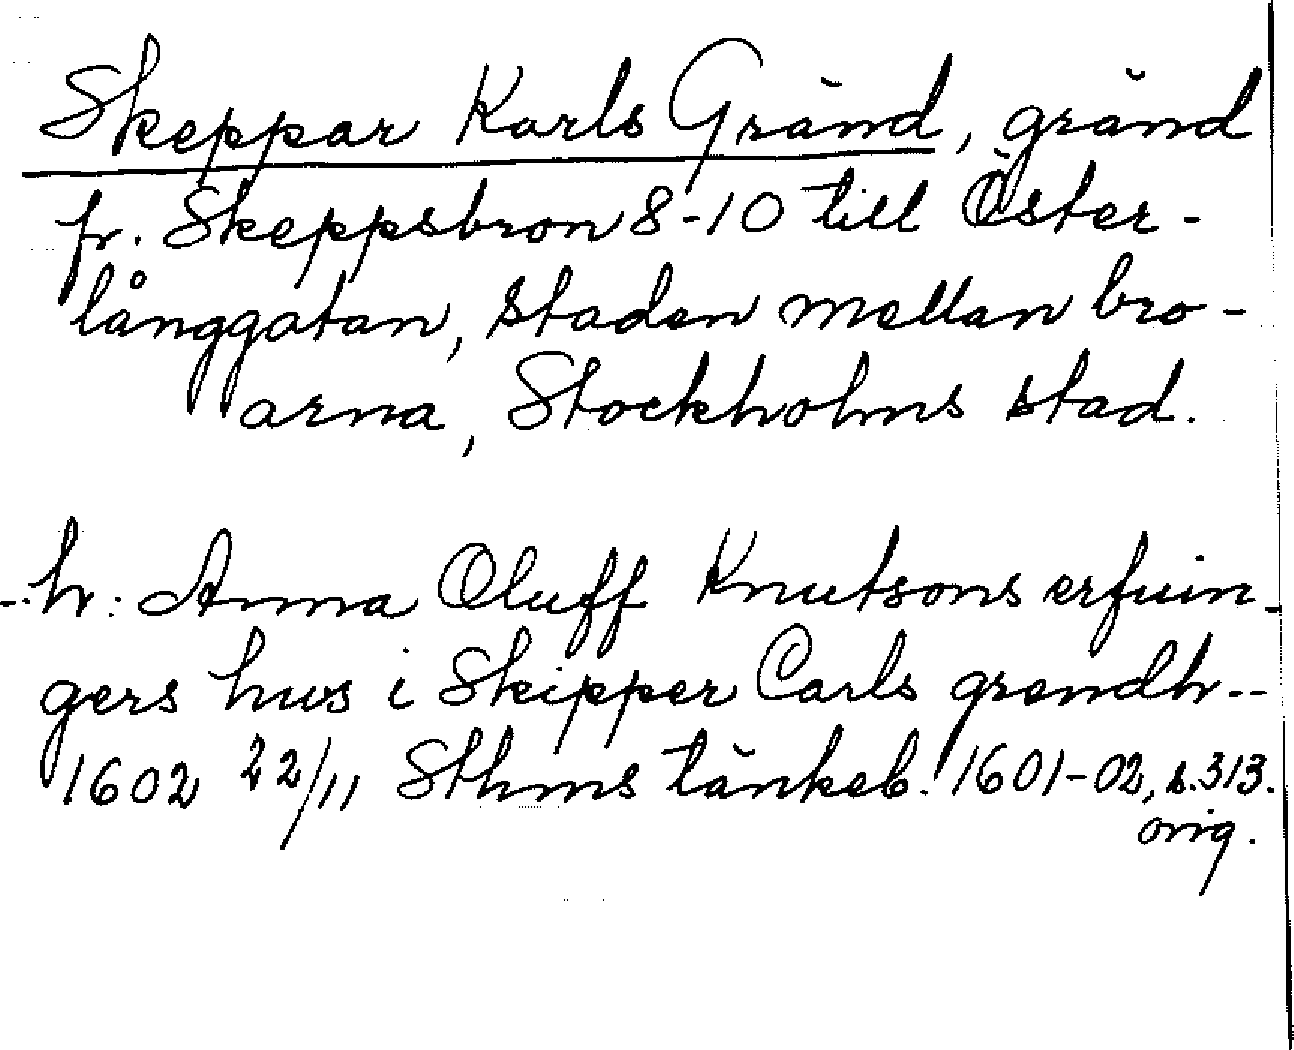 Skeppar Karls Gränd, gränd
fr. Skeppsbron 8-10 till Öster-
långgatan, staden mellan bro-
arna, Stockholms stad.
-- hr: Anna Oluff Knutsons erfuin-
gers hus i Skipper Carls grendh--
1602 22/11 Sthms tänkeb. 1601-02, s. 313.
orig.